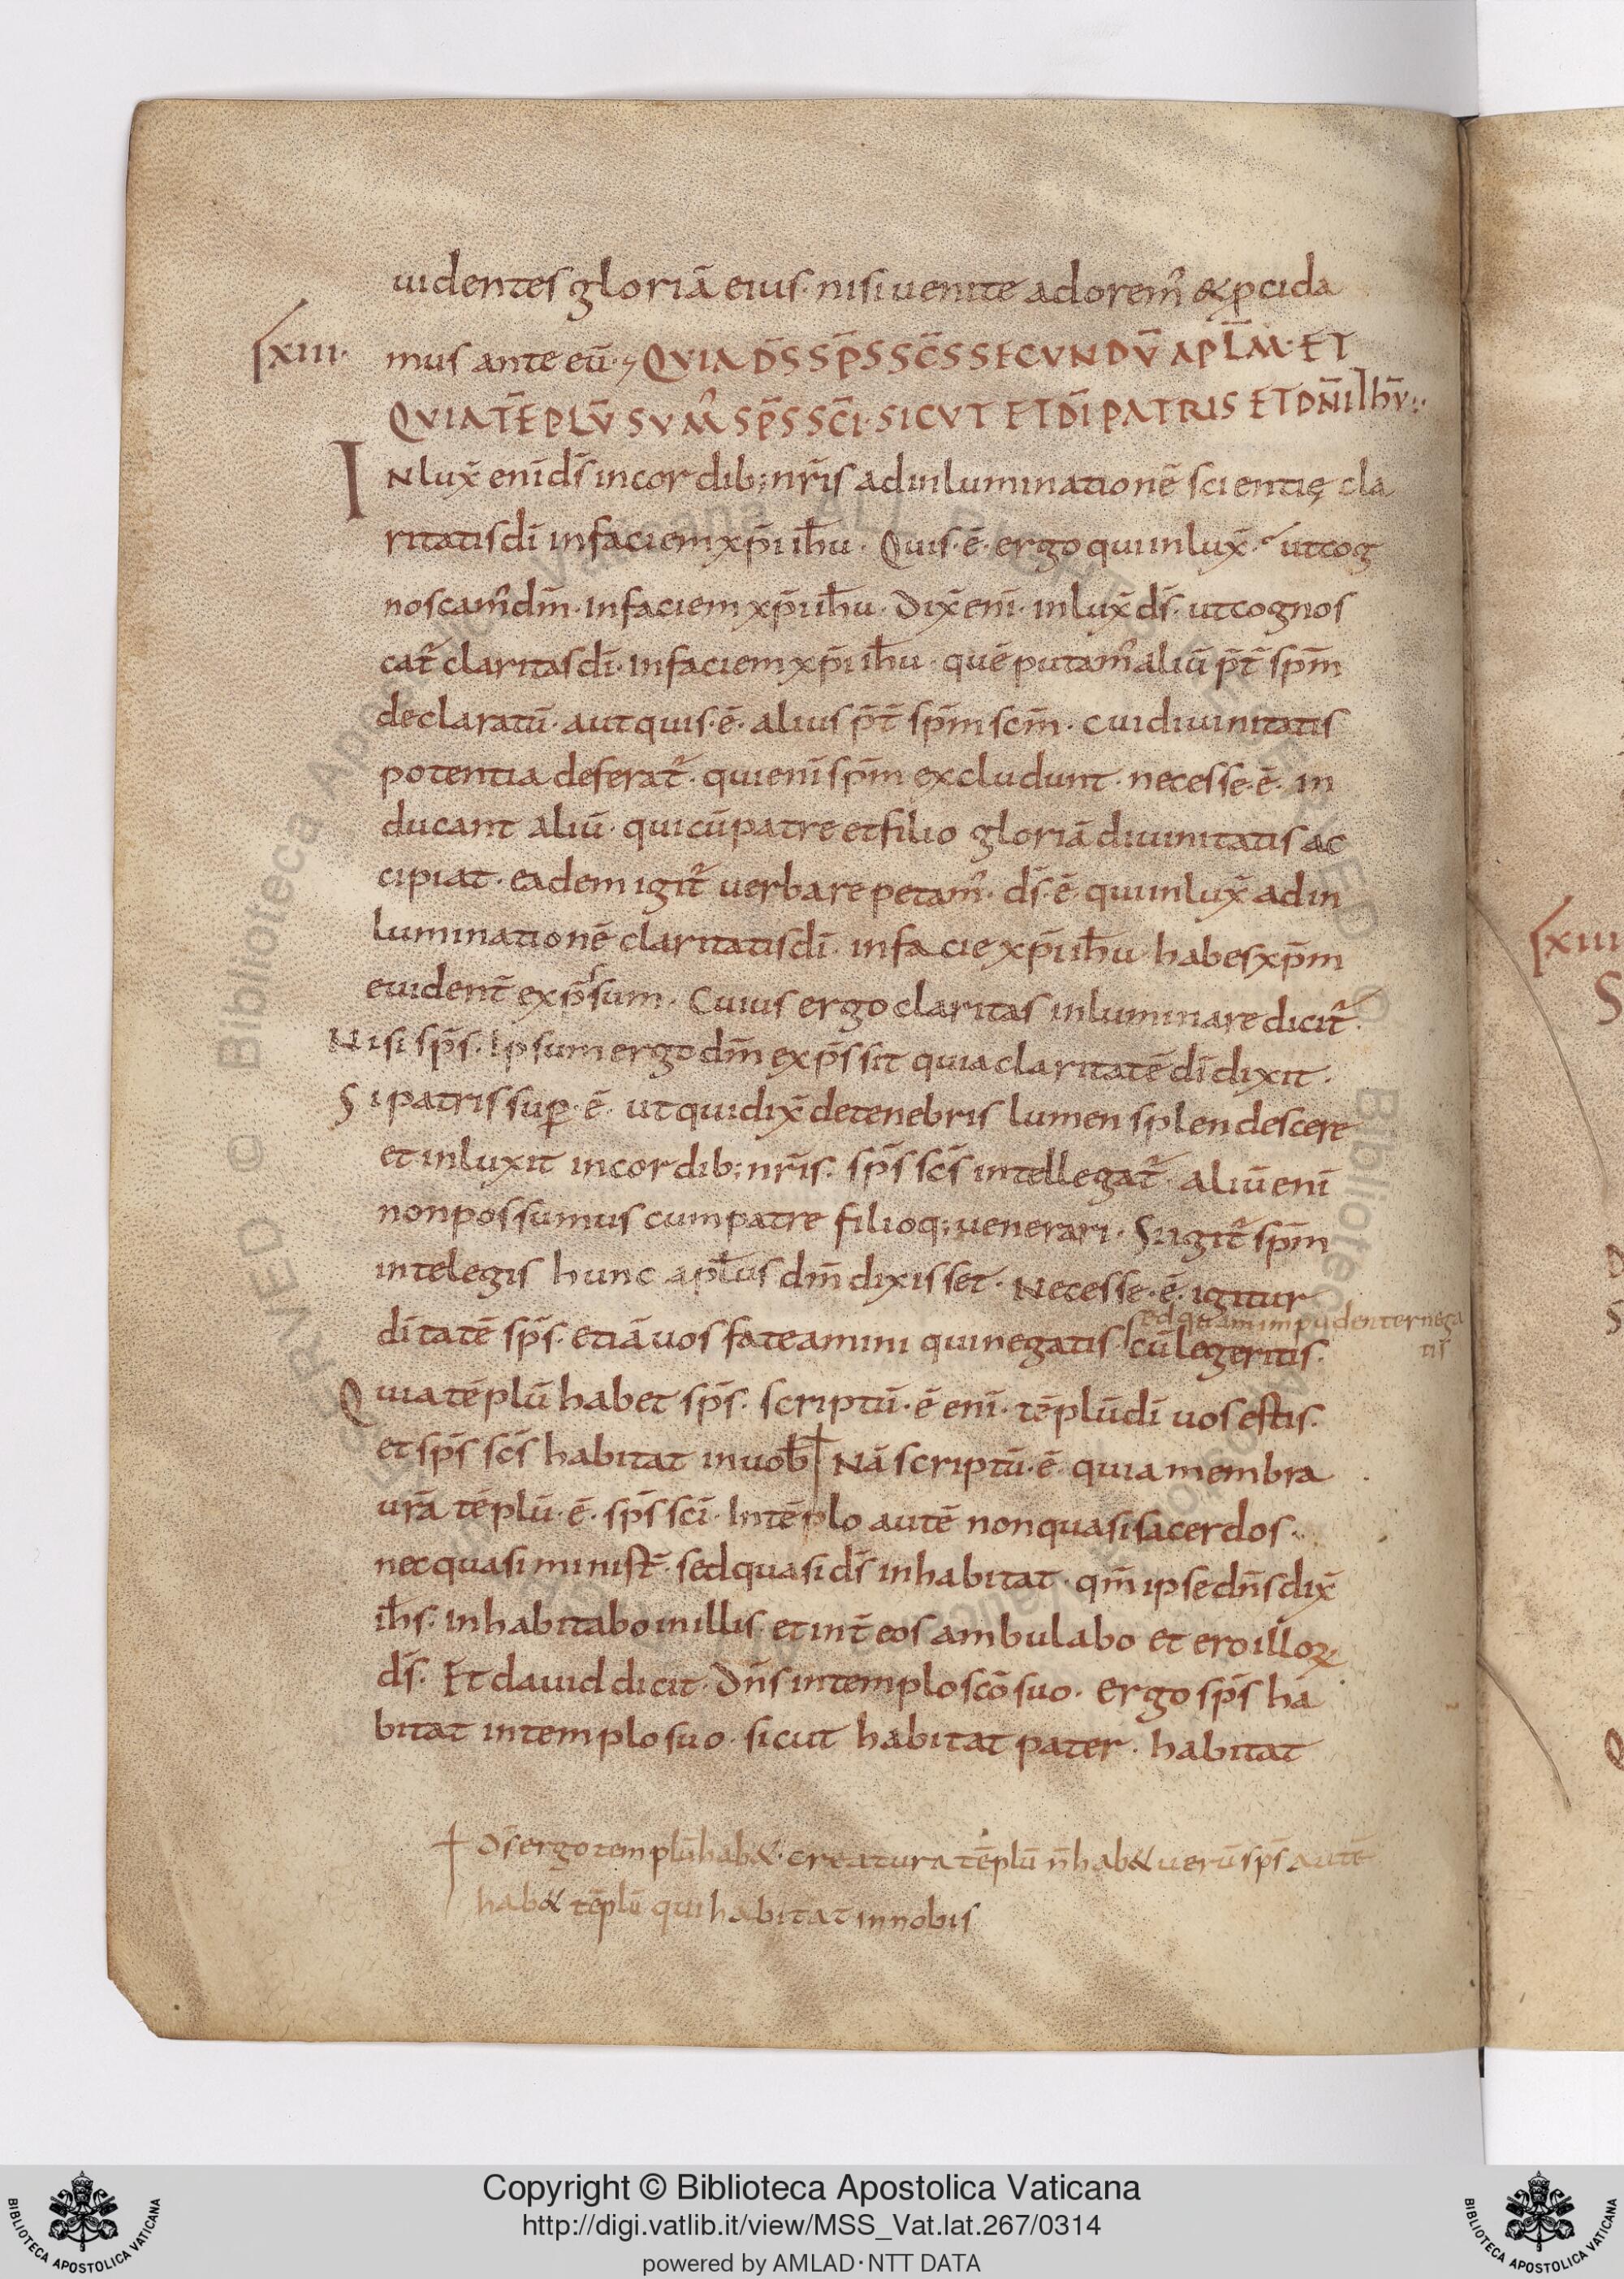 uidentes gloriā eius· nisi uenite adorem᷒ & ꝓcida
ſxiii· mus ante eū· QVIA DS̄ SP̄S SC̄S SECVNDV̄ APL̄M· ET
QVIA TĒPLV̄ SVM᷒ SP̄S SC̄I· SICVT ET DĪ PATRIS ET DN̄I IHV̄:·
INlux̄ enī ds̄ in cordib; nr̄is ad inluminationē scientię cla
ritatis dī in faciem xp̄i ih̄u· Quis·ē· ergo qui inlux̄· ut cog
noscam᷒ dm̄· in faciem xp̄i ih̄u· Dix̄ enī· inlux̄ ds̄· ut cognos
cat᷒ claritas dī· in faciem xp̄i ih̄u· quē putam᷒ aliū p̄t̄ sp̄m
declaratū· aut quis·ē· alius p̄t̄ sp̄m sc̄m· cui diuinitatis
potentia deferat᷒· qui enī sp̄m excludunt· necesse·ē· in
ducant aliū· qui cū patre et filio gloriā diuinitatis ac
cipiat· eadem igit᷒ uerba repetam᷒· ds̄·ē· qui inlux̄ ad in
luminationē claritatis dī· in facie xp̄i ih̄u habes xp̄m
euident̄ exp̄sum· Cuius ergo claritas inluminare dicit᷒·
Nisi sp̄s· Ipsum ergo dm̄ exp̄ssit quia claritatē dī dixit·
Si patris suꝑ·ē· ut qui dix̄ de tenebris lumen splendescere
et inluxit in cordib; nr̄is· sp̄s sc̄s intellegat᷒· aliū enī
non possumus cum patre filioq; uenerari· Si igit᷒ sp̄m
intelegis hunc apl̄us dm̄ dixisset· Necesse·ē· igitur
ed quam impudenter nega
tis
dītatē sp̄s· etiā uos fateamini qui negatis cū legeritis·
Quia tēplū habet sp̄s· scriptū·ē enī· tēplū dī uos estis·
et sp̄s sc̄s habitat in uob̄ Nā scriptū·ē· quia membra
ur̄a tēplū·ē· sp̄s sc̄i· In tēplo autē non quasi sacerdos·
nec quasi minist̄· sed quasi ds̄ inhabitat· qm̄ ipse dn̄s dix̄
ih̄s· inhabitabo in illis· et int̄ eos ambulabo et ero illoꝝ
ds̄· Et dauid dicit· Dn̄s in templo sc̄o suo· Ergo sp̄s ha
bitat in templo suo· sicut habitat pater· habitat
Ds̄ ergo templū hab&· creatura tēplū n̄ hab& uerū sp̄s autē
hab& tēplū qui habitat in nobis
ſxiii
Copyright © Biblioteca Apostolica Vaticana
http://digi.vatlib.it/view/MSS_Vat.lat.267/0314
powered by AMLAD·NTT DATA
BIBLIOTECA APOSTOLICA VATICANA
BIBLIOTECA APOSTOLICA VATICANA